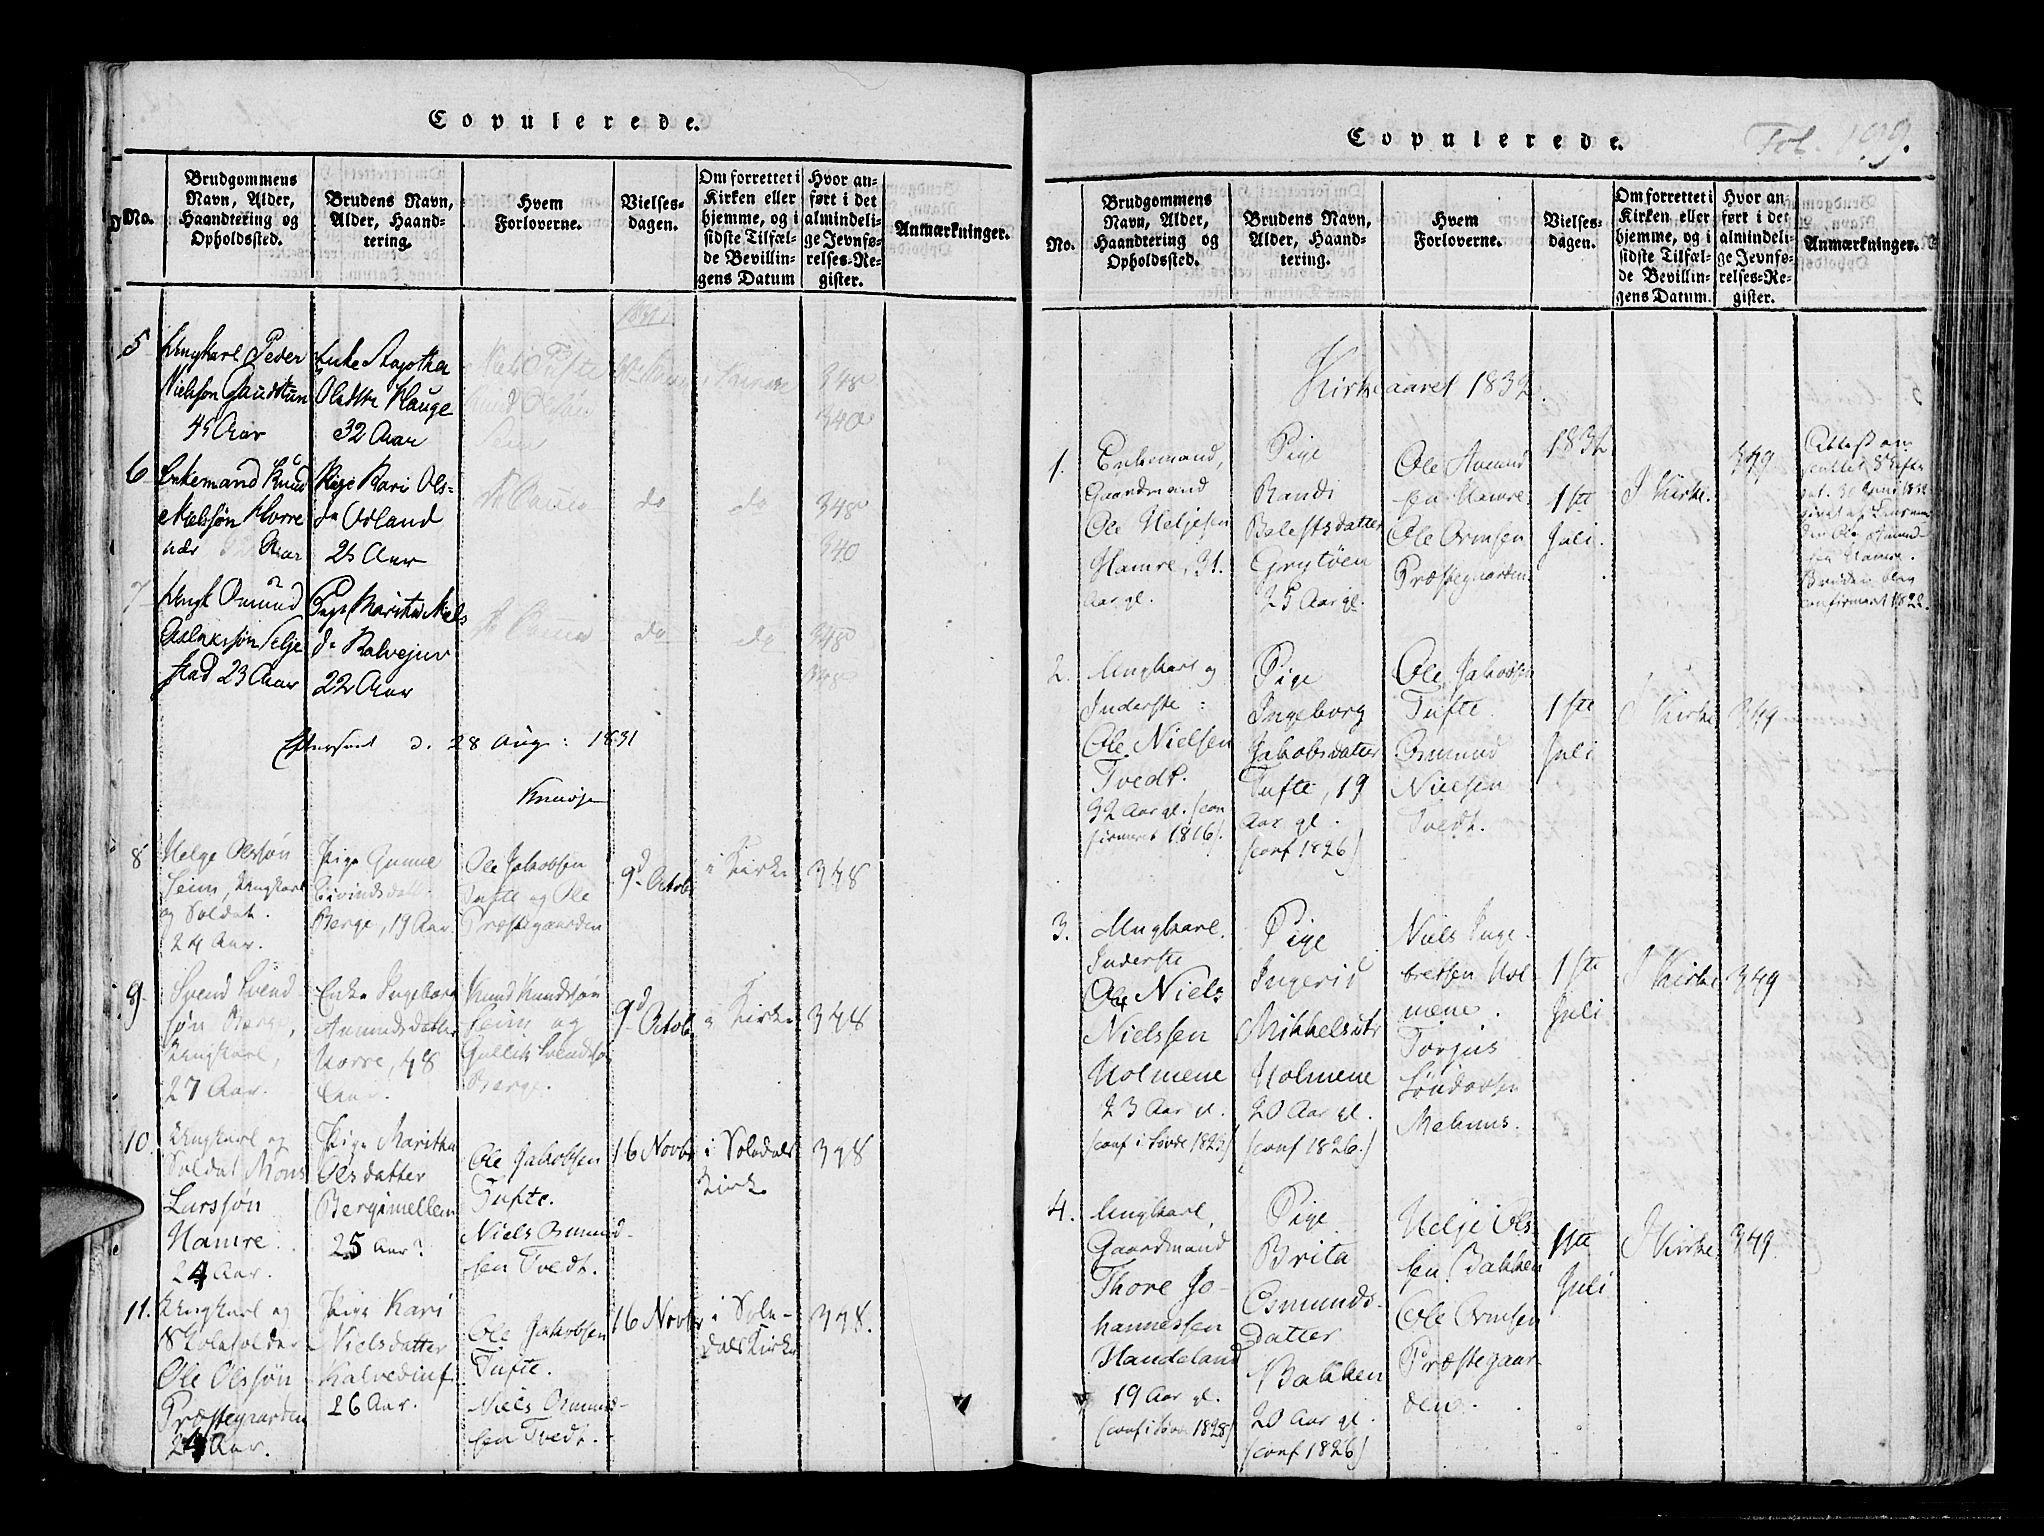 Copulerede.
No.
Brudgommens
Navn, Alder,
Haandtering og
Opholdssted.
Brudens Navn,
Alder, Haand-
tering.
Hvem
Forloverne.
Vielses-
dagen.
Om forrettet i
Kirken eller
hjemme, og i
sidste Tilfæl-
de Bevillin-
gens Datum
Hvor an-
ført i det
almindeli-
ge Jevnfø-
relses-Re-
gister.
Anmærkninger.
5
Ungkarl Peder
Nielsøn
45 Aar
Enke Aagotha
Olsdtr Hauge
32 Aar
Niels Tufte
Knud Olsøn
Seim
348
340
6
Enkemand Knud
Nielssøn Horre
Aar
Pige Kari Ols-
dr
25 Aar
do
do
348
340
7
Ungk Osmund
Aslakssøn Selje
stad 23 Aar
Pige Maritha Niels
dr
22 Aar
do
do
348
Efterseet d. 28 Aug: 1831
8
Helge Olssøn
Seim, Ungkarl
og Soldat.
24 Aar.
Pige Gunne
Eivindsdatt.
Berge, 19 Aar.
Ole Jakobsen
Tufte og Ole
Præstegaarden
9d Octob
i Kirke
348
9.
Svend Svend-
søn Berge,
Ungkarl,
27 Aar.
Enke Ingeborg
Aamundsdatter
Horre, 48
Aar.
Knud Knudssøn
Seim og
Gullik Svendsøn
Berge.
9d Octob
i Kirke
348
10.
Ungkarl og
Soldat Mons
Larssøn
Hamre.
24 Aar.
Pige Maritha
Olsdatter
Bergimellem
25 Aar.
Ole Jakobsen
Tufte.
Niels Osmund-
sen Tvedt.
16 Novbr
i Soledals
Kirke
348
11.
Ungkarl og
Skoleholder
Ole Olssøn
Præstegaarden
24 Aar.
Pige Kari
Nielsdatter
26 Aar.
Ole Jakobsen
Tufte.
Niels Osmund-
sen Tvedt.
16 Novbr
i Sole-
dals Kirke
348.
Copulerede.
Fol. 199.
No.
Brudgommens
Navn, Alder,
Haandtering og
Opholdssted.
Brudens Navn,
Alder, Haand-
tering.
Hvem
Forloverne.
Vielses-
dagen.
Om forrettet i
Kirken eller
hjemme, og i
sidste Tilfæl-
de Bevillin-
gens Datum.
Hvor an
ført i det
almindeli-
ge Jevnfø-
relses-Re-
gister.
Anmærkninger.
Kirkeaaret 1832.
1.
Enkemand,
Gaardmand
Ole Heljesen
Hamre, 31.
Aar gl.
Pige
Randi
Balestsdatter
Grytøen
25 Aar gl.
Ole Aamund
sen Hamre
Ole Ormsen
Præstegaarden
1832
1ste
Juli.
I Kirke.
349
Bruden blev
confirmeret 1822.
2.
Ungkarl og
Inderste:
Ole Nielsen
Tvedt.
32 Aar gl. (con
firmeret 1816).
Pige
Ingeborg
Jakobsdatter
Tufte, 19
Aar gl.
(conf 1826)
Ole Jakobsen
Tufte.
Osmund
Nielsen
Tvedt.
1ste
Juli
I Kirke
349
3.
Ungkarl.
Inderste
Ole Niels
Nielssen
Holmene
23 Aar gl.
(conf i Søvde 1823)
Pige
Ingerid
Mikkelsdtr
Holmene
20 Aar gl.
(conf 1826.)
Niels Inge-
bretsen Hol-
mene.
Torjus
1ste
Juli
I Kirke
349
4.
Ungkarl,
Gaardmand
Thore Jo-
hannessen
Handeland
19 Aar gl.
(conf i Søvde 1828)
Pige
Brita
Osmunds-
datter
Bakken
20 Aar gl.
(conf 1826)
Helje Ols
sen Bakken
Ole Ormsen
Præstegaar-
den.
1ste
Juli
I Kirke
349